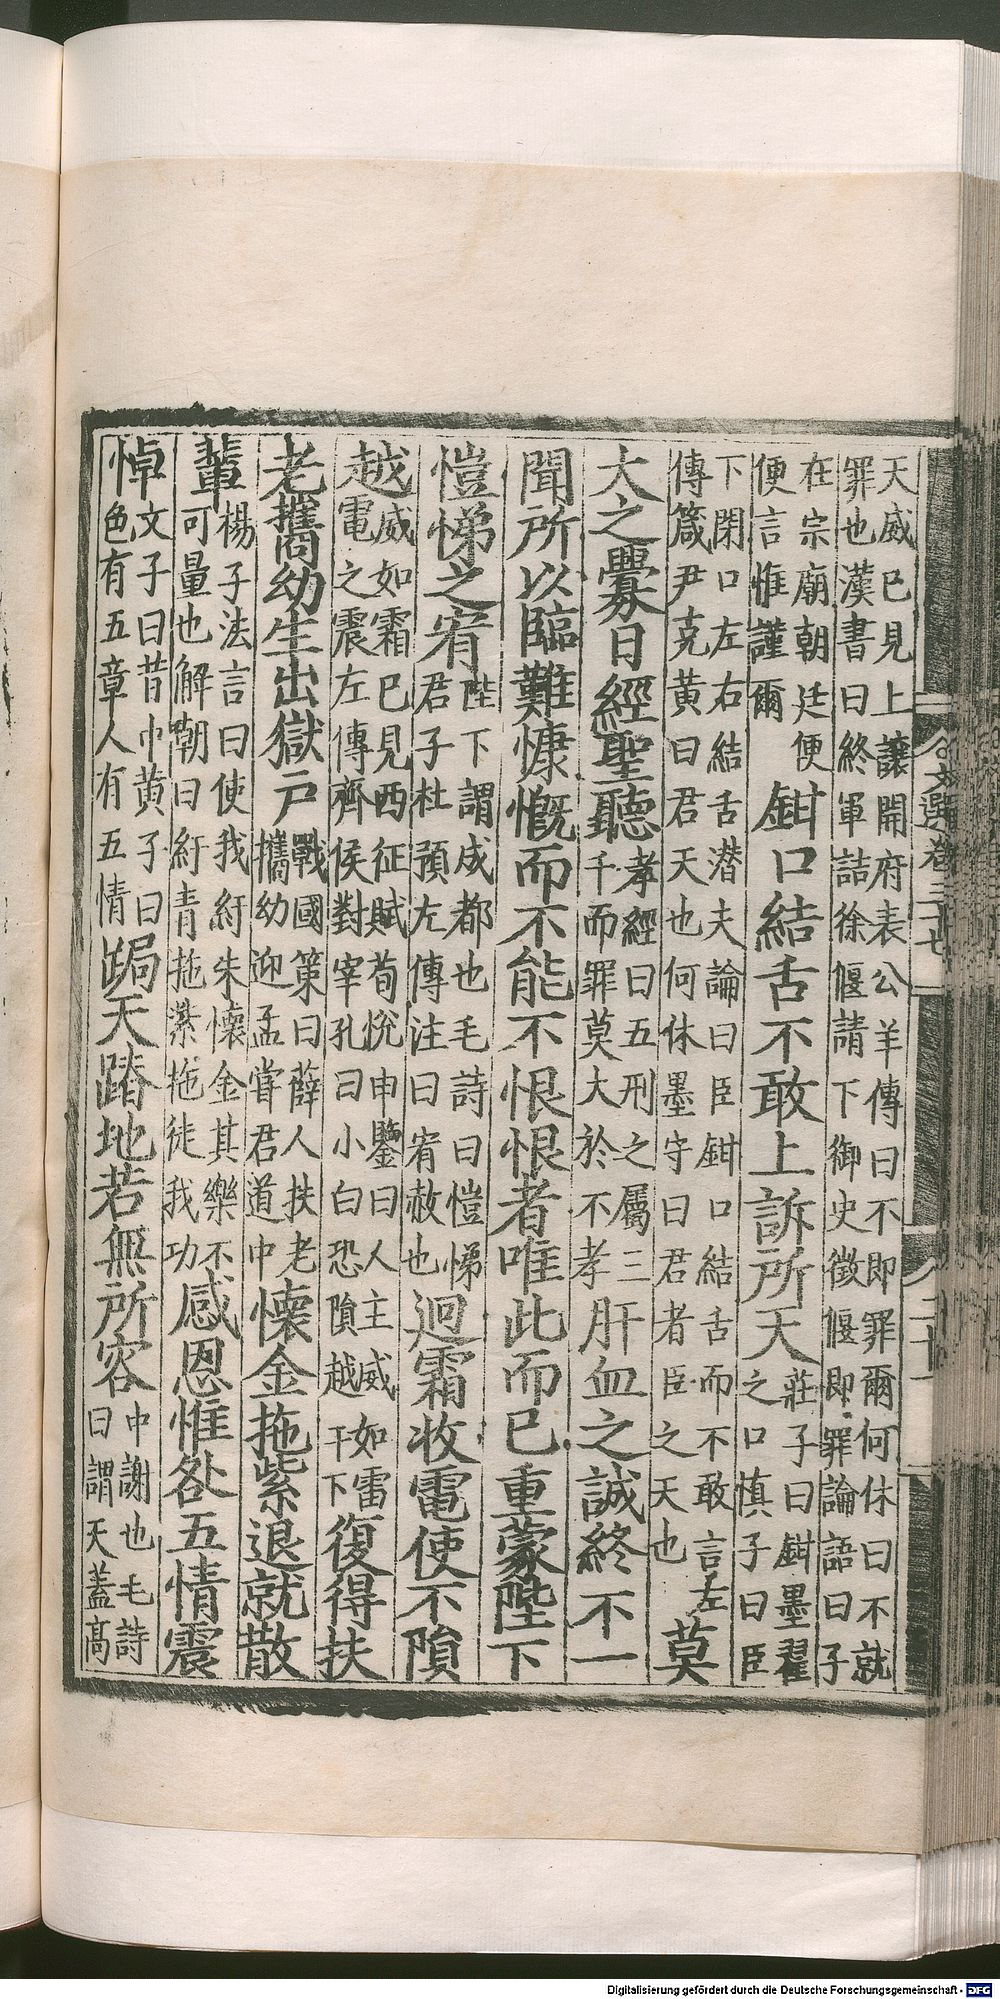 天威已見上讓開府表公羊傳曰不即罪爾何休曰不就
罪也漢書曰終軍詰徐偃請下御史徵偃即罪論語曰子
在宗廟朝廷便
便言惟謹爾
鉗口結舌不敢上訴所天
莊子曰鉗墨翟
之口慎子曰臣
下閉口左右結舌潜夫論曰臣鉗口結舌而不敢言左
傳箴尹克黃曰君天也何休墨守曰君者臣之天也
莫
大之釁日經聖聽
孝經曰五刑之屬三
千而罪莫大於不孝
肝血之誠終不一
聞所以臨難慷慨而不能不恨恨者唯此而已重蒙陛下
愷悌之宥
陛下謂成都也毛詩曰愷悌
君子杜預左傳注曰宥赦也
迴霜收電使不隕
越
威如霜已見西征賦荀悅申鑒曰人主威如雷
電之震左傳齊侯對宰孔曰小白恐隕越于下
復得扶
老攜幼生出獄戶
戰國策曰薛人扶老
攜幼迎孟嘗君道中
懷金拖紫退就散
輩
楊子法言曰使我紆朱懷金其樂不
可量也解嘲曰紆青拖紫拖徒我功
感恩惟咎五情震
悼
文子曰昔中黃子曰
色有五章人有五情
跼天蹐地若無所容
中謝也毛詩
曰謂天蓋高
文選卷三十七
Digitalisierung gefördert durch die Deutsche Forschungsgemeinschaft - DFG